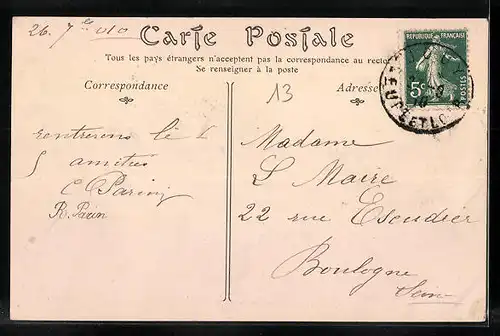 26. 7bre 010
Carte Postale
Tous les pays étrangers n'acceptent pas la correspondance au recto
Se renseigner à la poste
RÉPUBLIQUE FRANÇAISE
5c
POSTES
EURE ET LOIR
Correspondance
Adresse
13
rentrerons le
amitiés
C Parin
R. Parin
Madame
L Maire
22 rue Escudier
Boulogne
Seine